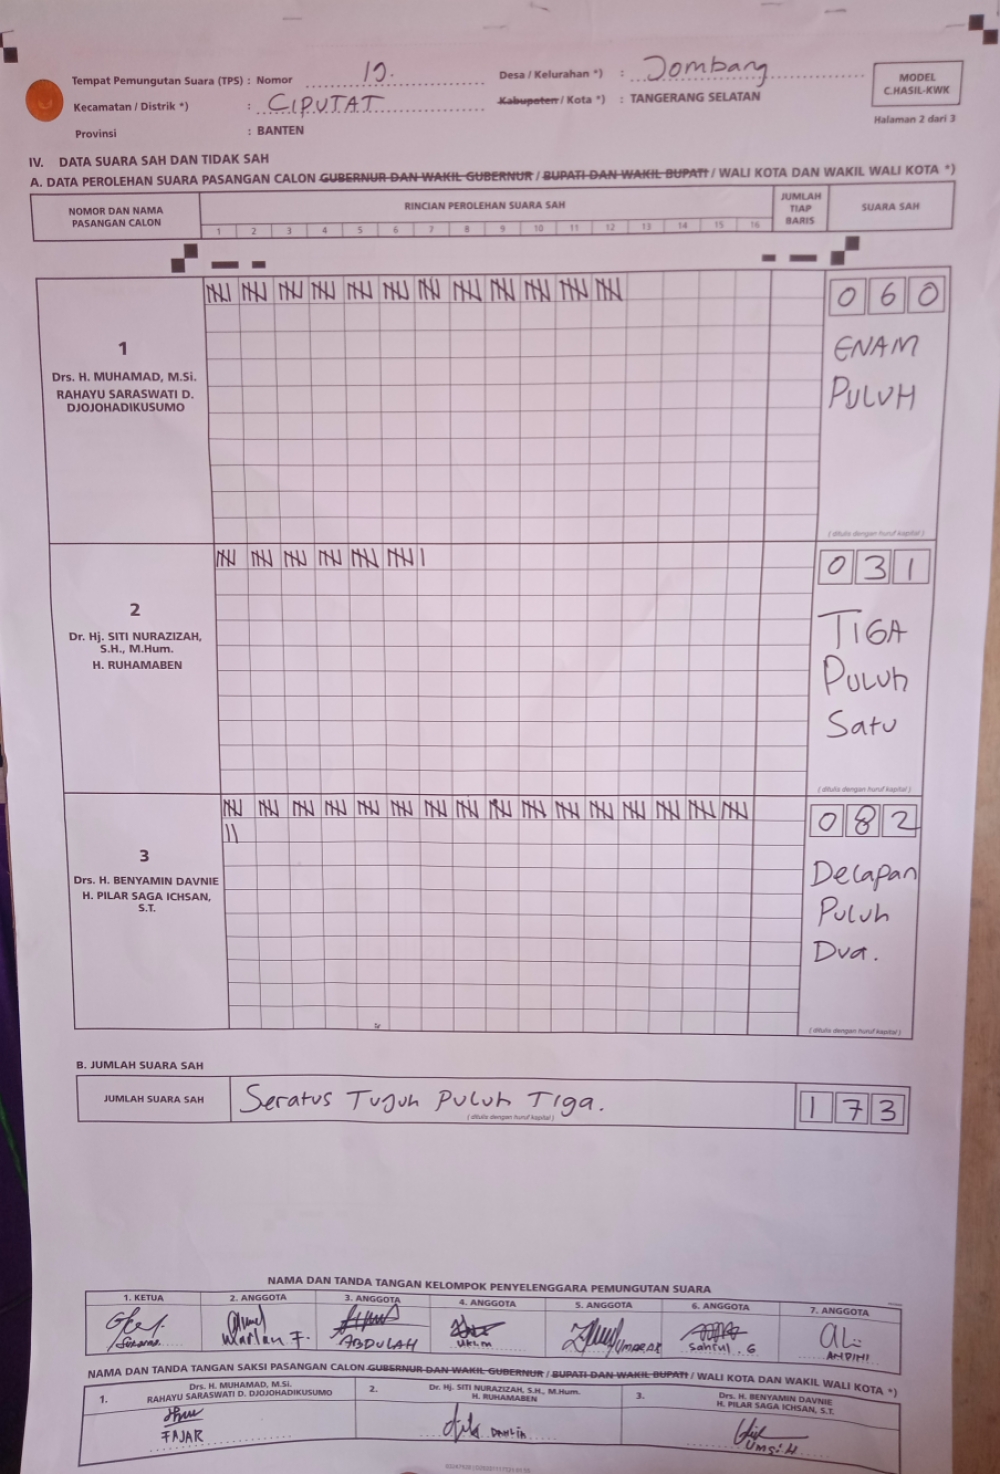 Tempat Pemungutan Suara (TPS) : Nomor 19. Desa / Kelurahan *) : Jombang
Kecamatan / Distrik *) : CIPUTAT Kabupaten / Kota *) : TANGERANG SELATAN
Provinsi : BANTEN
MODEL
C.HASIL-KWK
Halaman 2 dari 3
IV. DATA SUARA SAH DAN TIDAK SAH
A. DATA PEROLEHAN SUARA PASANGAN CALON GUBERNUR DAN WAKIL GUBERNUR / BUPATI DAN WAKIL BUPATI / WALI KOTA DAN WAKIL WALI KOTA *)
NOMOR DAN NAMA
PASANGAN CALON
RINCIAN PEROLEHAN SUARA SAH
1 2 3 4 5 6 7 8 9 10 11 12 13 14 15 16
JUMLAH
TIAP
BARIS
SUARA SAH
1
Drs. H. MUHAMAD, M.Si.
RAHAYU SARASWATI D.
DJOJOHADIKUSUMO
0 6 0
ENAM
PULUH
( ditulis dengan huruf kapital )
2
Dr. Hj. SITI NURAZIZAH,
S.H., M.Hum.
H. RUHAMABEN
0 3 1
TIGA
PULUh
Satu
( ditulis dengan huruf kapital )
3
Drs. H. BENYAMIN DAVNIE
H. PILAR SAGA ICHSAN,
S.T.
0 8 2
Delapan
Puluh
Dua.
( ditulis dengan huruf kapital )
B. JUMLAH SUARA SAH
JUMLAH SUARA SAH Seratus Tujuh Puluh Tiga. 1 7 3
( ditulis dengan huruf kapital )
NAMA DAN TANDA TANGAN KELOMPOK PENYELENGGARA PEMUNGUTAN SUARA
1. KETUA 2. ANGGOTA 3. ANGGOTA 4. ANGGOTA 5. ANGGOTA 6. ANGGOTA 7. ANGGOTA
ABDULAH
NAMA DAN TANDA TANGAN SAKSI PASANGAN CALON GUBERNUR DAN WAKIL GUBERNUR / BUPATI DAN WAKIL BUPATI / WALI KOTA DAN WAKIL WALI KOTA *)
1. Drs. H. MUHAMAD, M.Si.
RAHAYU SARASWATI D. DJOJOHADIKUSUMO
2. Dr. Hj. SITI NURAZIZAH, S.H., M.Hum.
H. RUHAMABEN
3. Drs. H. BENYAMIN DAVNIE
H. PILAR SAGA ICHSAN, S.T.
FAJAR
DAHLIA